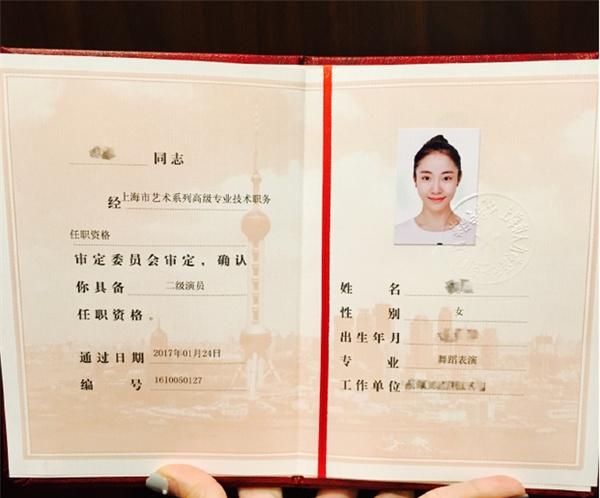 同志
经 上海市艺术系列高级专业技术职务
任职资格
审定委员会审定，确认
你具备 二级演员
任职资格。
通过日期 2017年01月24日
编 号 1610050127
姓 名
性 别 女
出生年月
专 业 舞蹈表演
工作单位